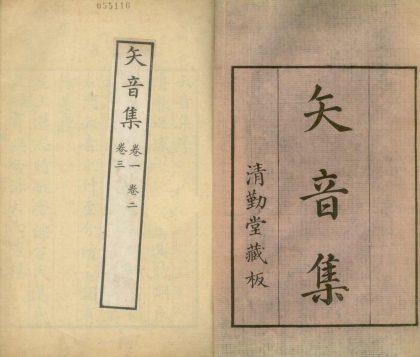 055116
矢音集
卷一 卷二
卷三
矢音集
清勤堂藏板